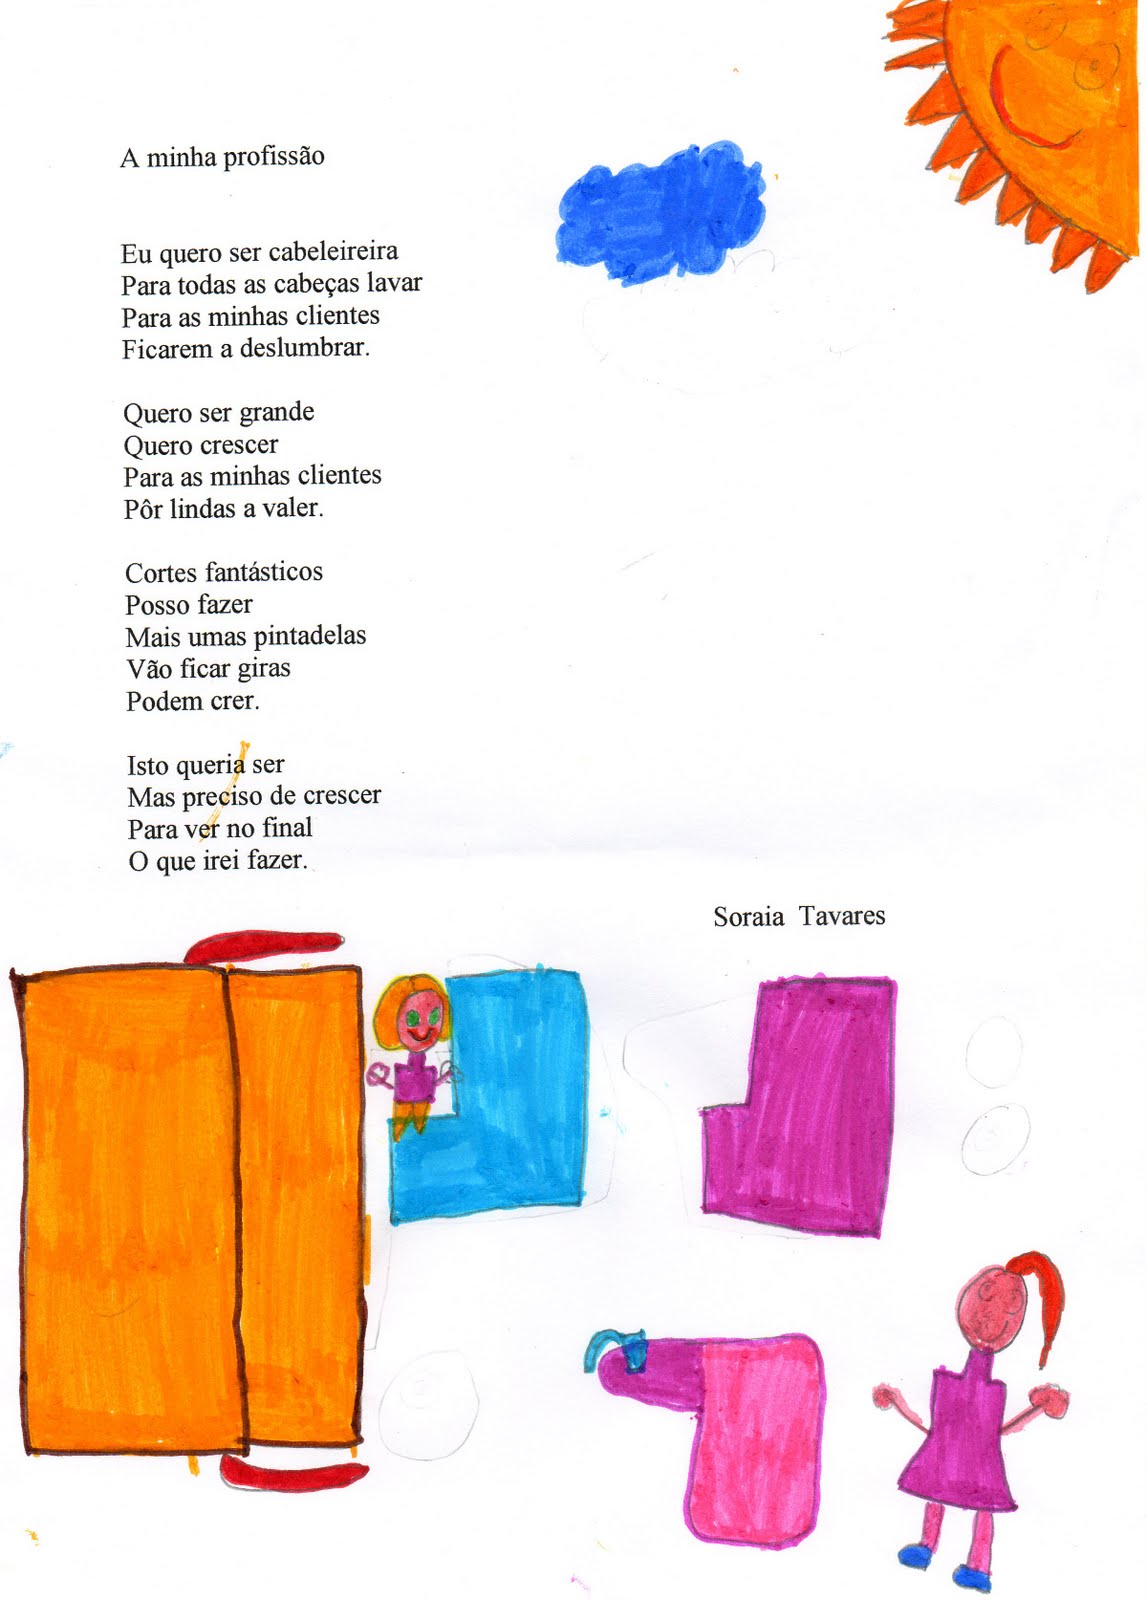 A minha profissão
Eu quero ser cabeleireira
Para todas as cabeças lavar
Para as minhas clientes
Ficarem a deslumbrar.
Quero ser grande
Quero crescer
Para as minhas clientes
Pôr lindas a valer.
Cortes fantásticos
Posso fazer
Mais umas pintadelas
Vão ficar giras
Podem crer.
Isto queria ser
Mas preciso de crescer
Para ver no final
O que irei fazer.
Soraia Tavares